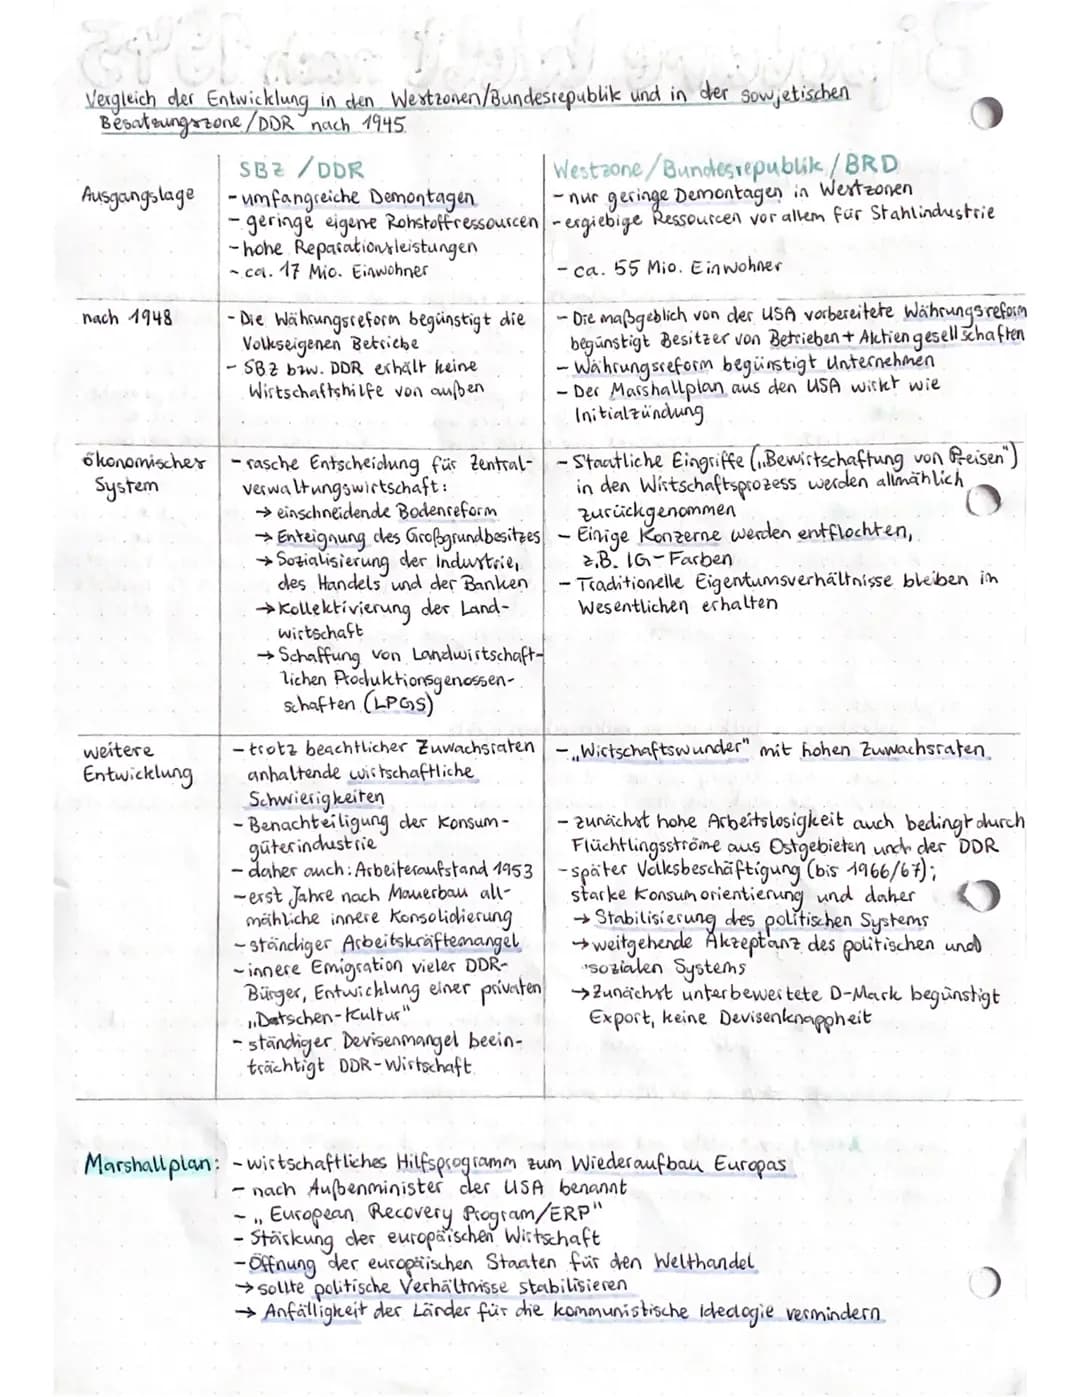 Vergleich der Entwicklung in den Westzonen/Bundesrepublik und in der sowjetischen
Besatzungszone/DDR nach 1945
SBZ / DDR
Westzone/Bundesrepublik / BRD
Ausgangslage
- umfangreiche Demontagen
- geringe eigene Rohstoffressourcen
- hohe Reparationsleistungen
- ca. 17 Mio. Einwohner
- nur geringe Demontagen in Westzonen
- ergiebige Ressourcen vor allem für Stahlindustrie
- ca. 55 Mio. Einwohner
nach 1948
- Die Währungsreform begünstigt die
Volkseigenen Betriebe
- SBZ bzw. DDR erhält keine
Wirtschaftshilfe von außen
- Die maßgeblich von der USA vorbereitete Währungsreform
begünstigt Besitzer von Betrieben + Aktiengesellschaften
- Währungsreform begünstigt Unternehmen
- Der Marshallplan aus den USA wirkt wie
Initialzündung
ökonomisches
System
- rasche Entscheidung für Zentral-
verwaltungswirtschaft:
→ einschneidende Bodenreform
→ Enteignung des Großgrundbesitzes
→ Sozialisierung der Industrie,
des Handels und der Banken
→ Kollektivierung der Land-
wirtschaft
→ Schaffung von Landwirtschaft-
lichen Produktionsgenossen-
schaften (LPGs)
- Staatliche Eingriffe („Bewirtschaftung von Preisen")
in den Wirtschaftsprozess werden allmählich
zurückgenommen
- Einige Konzerne werden entflochten,
z.B. IG-Farben
- Traditionelle Eigentumsverhältnisse bleiben im
Wesentlichen erhalten
weitere
Entwicklung
- trotz beachtlicher Zuwachsraten
anhaltende wirtschaftliche
Schwierigkeiten
- Benachteiligung der Konsum-
güterindustrie
- daher auch: Arbeiteraufstand 1953
- erst Jahre nach Mauerbau all-
mähliche innere Konsolidierung
- ständiger Arbeitskräftemangel
- innere Emigration vieler DDR-
Bürger, Entwicklung einer privaten
„Datschen-Kultur"
- ständiger Devisenmangel beein-
trächtigt DDR-Wirtschaft
- „Wirtschaftswunder" mit hohen Zuwachsraten
- zunächst hohe Arbeitslosigkeit auch bedingt durch
Flüchtlingsströme aus Ostgebieten und der DDR
- später Volksbeschäftigung (bis 1966/67);
starke Konsumorientierung und daher
→ Stabilisierung des politischen Systems
→ weitgehende Akzeptanz des politischen und
sozialen Systems
→ Zunächst unterbewertete D-Mark begünstigt
Export, keine Devisenknappheit
Marshallplan: - wirtschaftliches Hilfsprogramm zum Wiederaufbau Europas
- nach Außenminister der USA benannt
- „European Recovery Program/ERP"
- Stärkung der europäischen Wirtschaft
- Öffnung der europäischen Staaten für den Welthandel
→ sollte politische Verhältnisse stabilisieren
→ Anfälligkeit der Länder für die kommunistische Ideologie vermindern